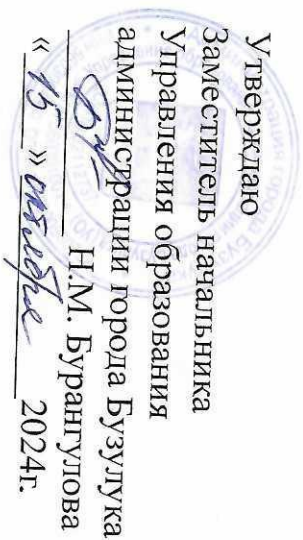 Утверждаю
Заместитель начальника
Управления образования
администрации города Бузулука
Н.М. Бурангулова
« 15 » октября 2024г.